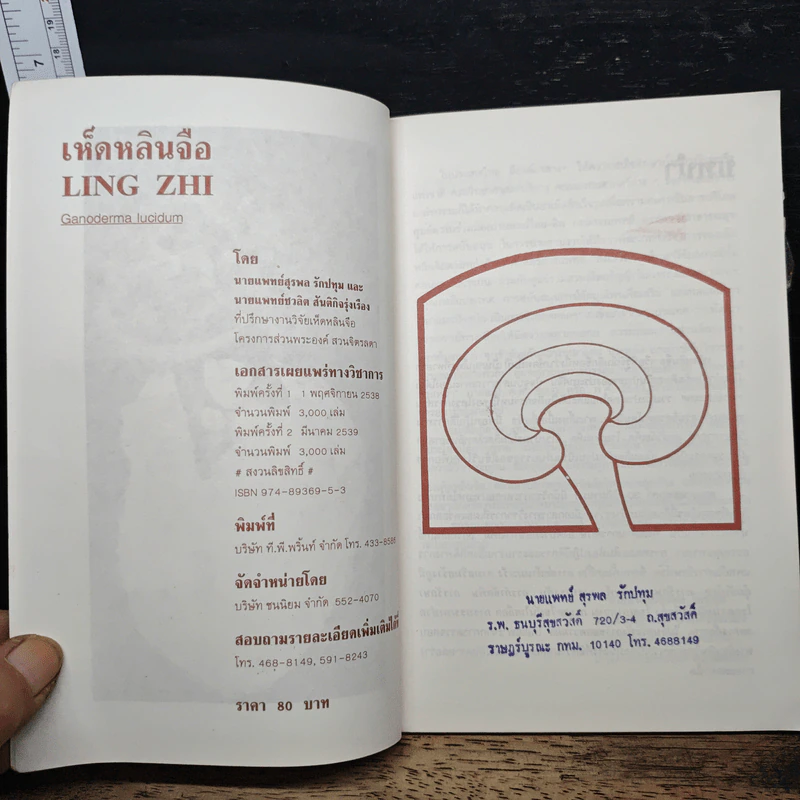 เห็ดหลินจือ
LING ZHI
Ganoderma lucidum
โดย
นายแพทย์สุรพล รักปทุม และ
นายแพทย์ชวลิต สันติกิจรุ่งเรือง
ที่ปรึกษางานวิจัยเห็ดหลินจือ
โครงการส่วนพระองค์ สวนจิตรลดา
เอกสารเผยแพร่ทางวิชาการ
พิมพ์ครั้งที่ 1 1 พฤศจิกายน 2538
จำนวนพิมพ์ 3,000 เล่ม
พิมพ์ครั้งที่ 2 มีนาคม 2539
จำนวนพิมพ์ 3,000 เล่ม
# สงวนลิขสิทธิ์ #
ISBN 974-89369-5-3
พิมพ์ที่
บริษัท ที.พี.พริ้นท์ จำกัด โทร. 433-8586
จัดจำหน่ายโดย
บริษัท ชนนิยม จำกัด 552-4070
สอบถามรายละเอียดเพิ่มเติมได้ที่
โทร. 468-8149, 591-8243
ราคา 80 บาท
นายแพทย์ สุรพล รักปทุม
ร.พ. ธนบุรีสุขสวัสดิ์ 720/3-4 ถ.สุขสวัสดิ์
ราษฎร์บูรณะ กทม. 10140 โทร. 4688149
7
18
19